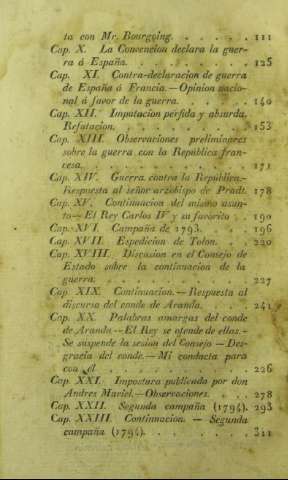 ta con Mr. Bourgoing. . . . . . 111
Cap. X. La Convencion declara la guer-
ra á España. . . . . . . . . 125
Cap. XI. Contra-declaracion de guerra
de España á Francia.—Opinion nacio-
nal á favor de la guerra. . . . . . 140
Cap. XII. Imputacion pérfida y absurda.
Refutacion. . . . . . . . . . 153
Cap. XIII. Observaciones preliminares
sobre la guerra con la República fran-
cesa. . . . . . . . . . . . 171
Cap. XIV. Guerra contra la República.—
Respuesta al señor arzobispo de Pradt. 178
Cap. XV. Continuacion del mismo asun-
to—El Rey Carlos IV y su favorito . . 190
Cap. XVI. Campaña de 1793. . . . 196
Cap. XVII. Espedicion de Tolon. . . . 220
Cap. XVIII. Discusion en el Consejo de
Estado sobre la continuacion de la
guerra. . . . . . . . . . . 227
Cap. XIX. Continuacion.—Respuesta al
discurso del conde de Aranda. . . . 241
Cap. XX. Palabras amargas del conde
de Aranda.—El Rey se ofende de ellas.—
Se suspende la sesion del Consejo—Des-
gracia del conde.—Mi conducta para
con él . . . . . . . . . . . 226
Cap. XXI. Impostura publicada por don
Andres Muriel.—Observaciones. . . 278
Cap. XXII. Segunda campaña (1794). 293
Cap. XXIII. Continuacion. — Segunda
campaña (1794). . . . . . . . 311